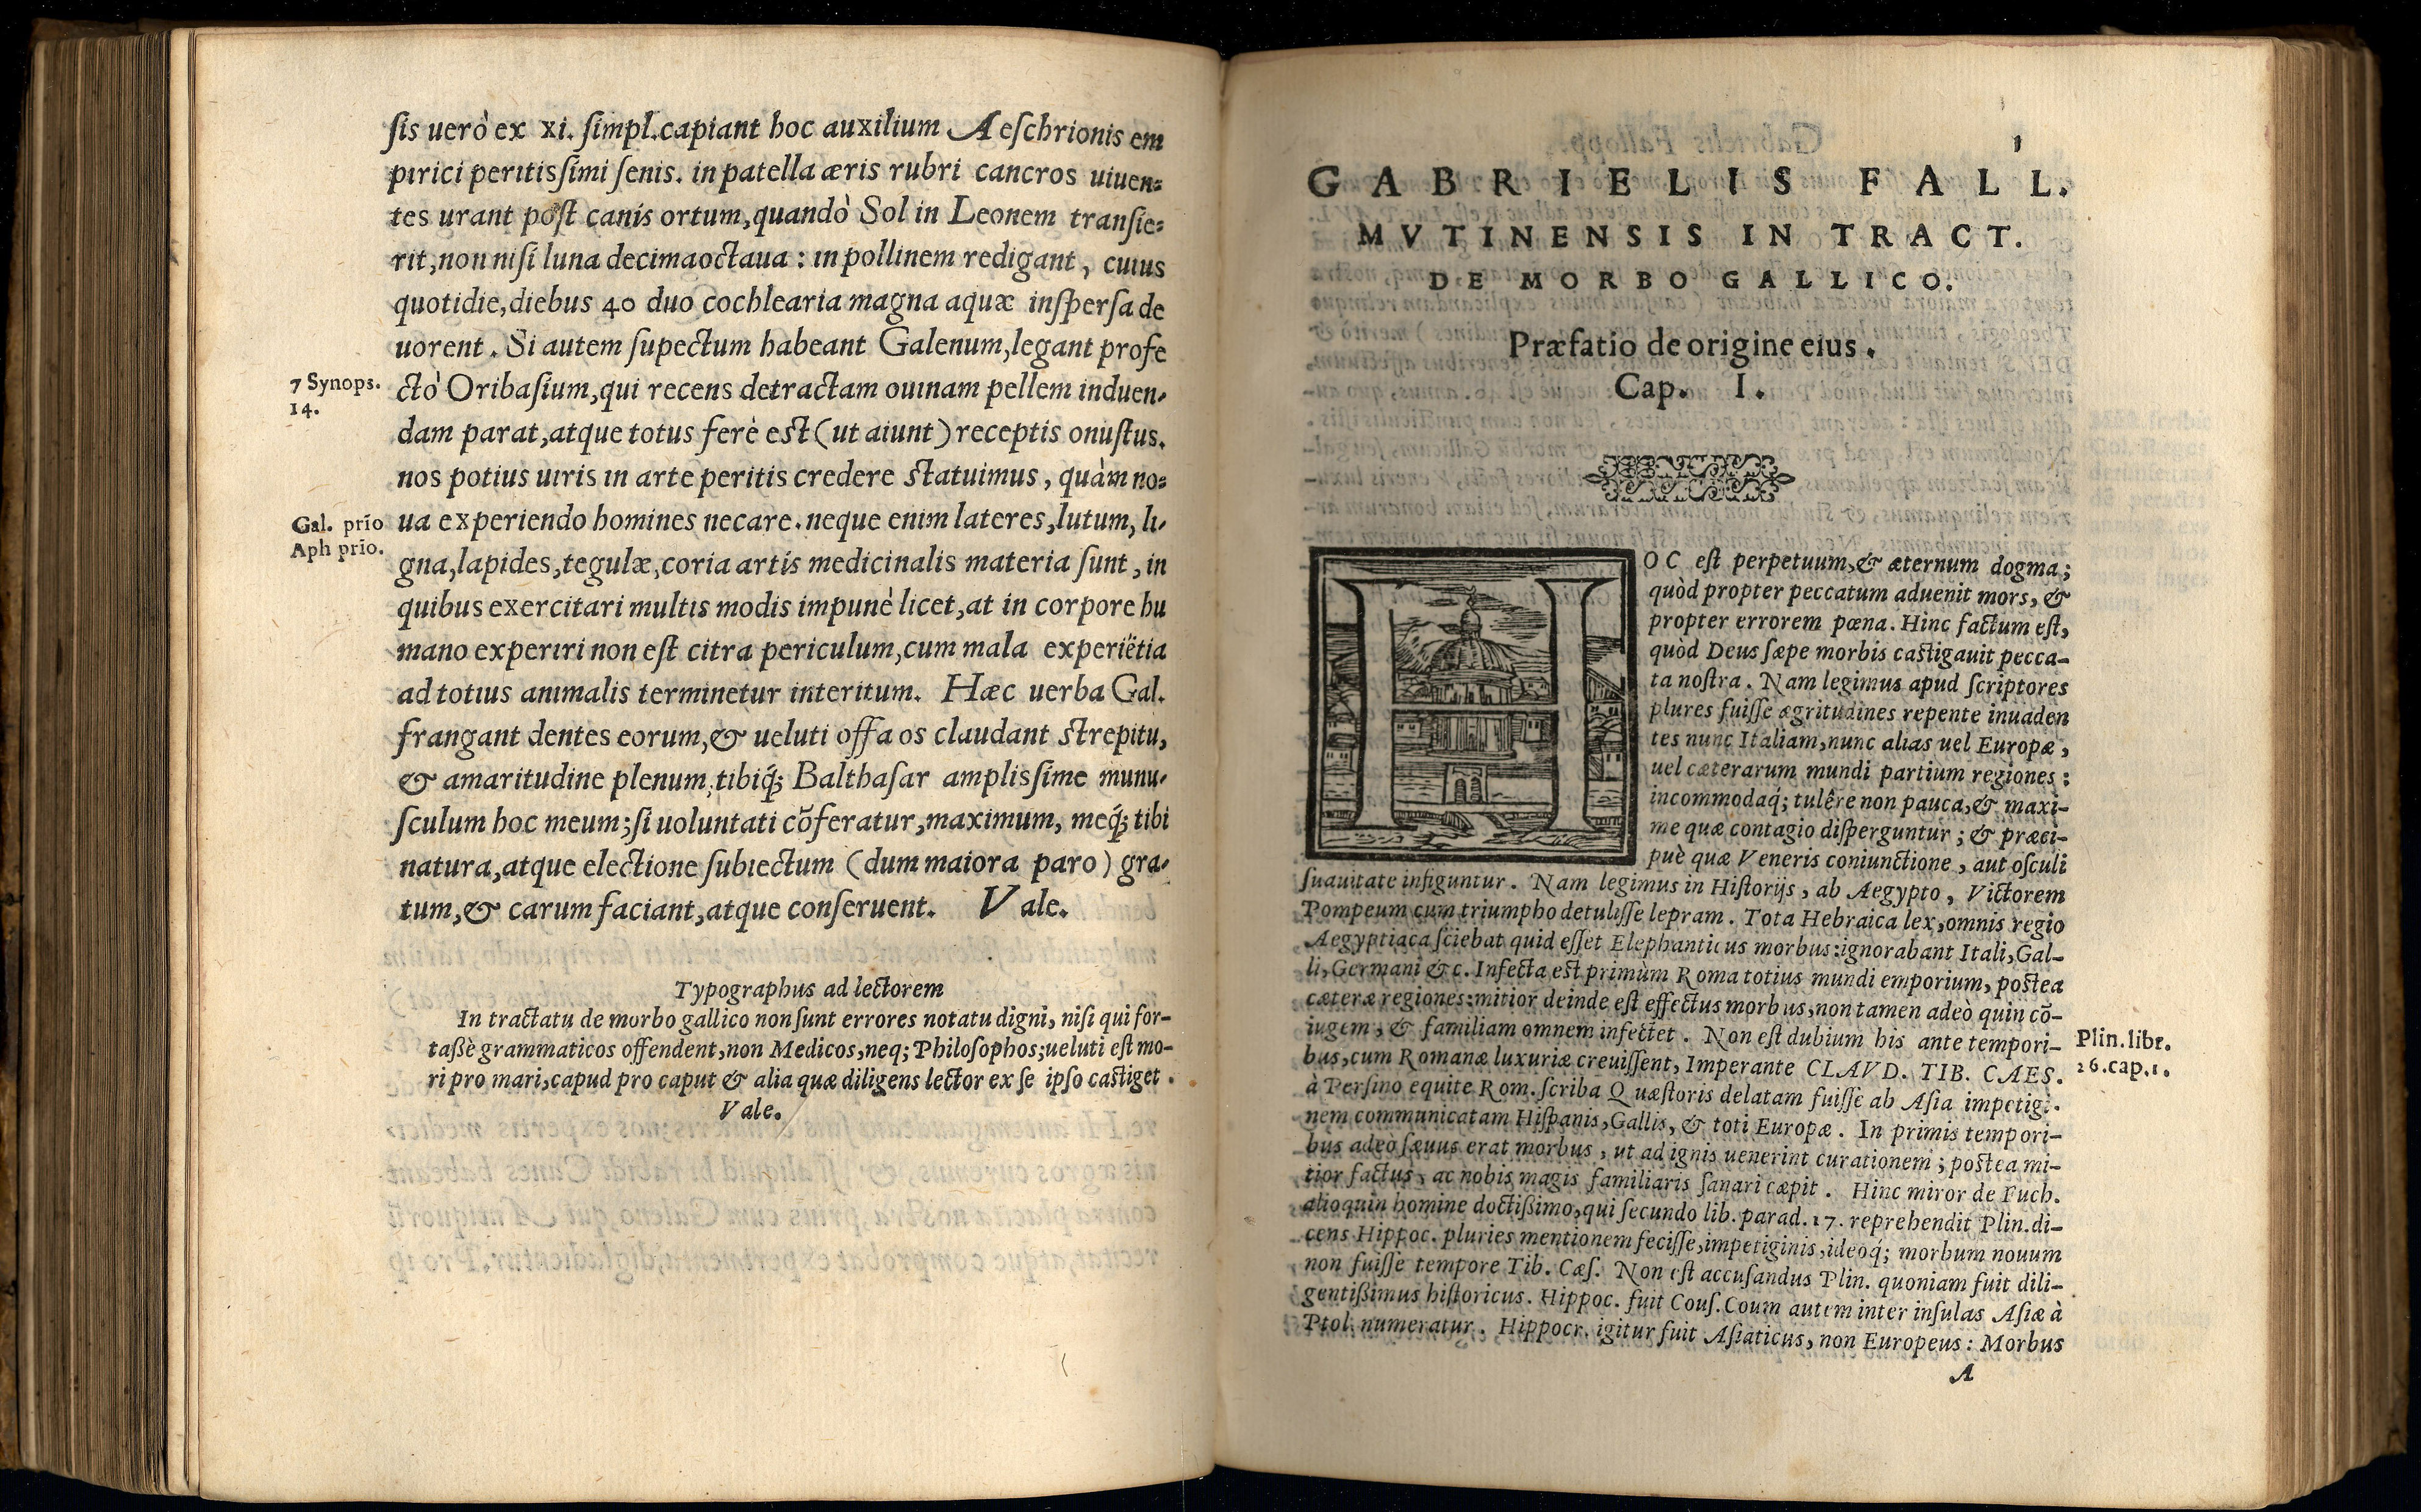 ſis uerò ex xi. ſimpl.capiant hoc auxilium Aeſchrionis em
pirici peritisſimi ſenis. in patella æris rubri cancros uiuen=
tes urant poſt canis ortum,quandò Sol in Leonem tranſie=
rit,non niſi luna decimaoctaua : in pollinem redigant, cuius
quotidie,diebus 40 duo cochlearia magna aquæ inſperſa de
uorent. Si autem ſupectum habeant Galenum,legant profe
7 Synops.
14.
ctò Oribaſium,qui recens detractam ouinam pellem induen-
dam parat,atque totus ferè eſt (ut aiunt) receptis onuſtus.
nos potius uiris in arte peritis credere ſtatuimus, quàm no=
Gal. prio
Aph prio.
ua experiendo homines necare. neque enim lateres,lutum, li-
gna,lapides,tegulæ,coria artis medicinalis materia ſunt, in
quibus exercitari multis modis impunè licet,at in corpore hu
mano experiri non eſt citra periculum,cum mala experiẽtia
ad totius animalis terminetur interitum. Hæc uerba Gal.
frangant dentes eorum,& ueluti offa os claudant ſtrepitu,
& amaritudine plenum,tibiq́; Balthaſar amplisſime munu-
ſculum hoc meum;ſi uoluntati cõferatur,maximum, meq́; tibi
natura,atque electione ſubiectum (dum maiora paro) gra-
tum,& carum faciant,atque conſeruent. Vale.
Typographus ad lectorem
In tractatu de morbo gallico non ſunt errores notatu digni, niſi qui for-
taßè grammaticos offendent,non Medicos,neq; Philoſophos;ueluti eſt mo-
ri pro mari,capud pro caput & alia quæ diligens lector ex ſe ipſo caſtiget.
Vale.
1
GABRIELIS FALL.
MVTINENSIS IN TRACT.
DE MORBO GALLICO.
Præfatio de origine eius.
Cap. I.
HOC eſt perpetuum,& æternum dogma;
quòd propter peccatum aduenit mors, &
propter errorem pœna. Hinc factum eſt,
quòd Deus ſæpe morbis caſtigauit pecca-
ta noſtra. Nam legimus apud ſcriptores
plures fuiſſe ægritudines repente inuaden
tes nunc Italiam,nunc alias uel Europæ,
uel cæterarum mundi partium regiones:
incommodaq́; tulêre non pauca,& maxi-
me quæ contagio diſperguntur; & præci-
puè quæ Veneris coniunctione, aut oſculi
ſuauitate infiguntur. Nam legimus in Hiſtorijs, ab Aegypto, Victorem
Pompeum cum triumpho detuliſſe lepram. Tota Hebraica lex,omnis regio
Aegyptiaca ſciebat quid eſſet Elephanticus morbus:ignorabant Itali,Gal-
li,Germani &c. Infecta eſt primùm Roma totius mundi emporium, poſtea
cæteræ regiones:mitior deinde eſt effectus morbus,non tamen adeò quin cõ-
iugem, & familiam omnem infectet. Non eſt dubium his ante tempori-
Plin. libr.
26.cap.1.
bus,cum Romanæ luxuriæ creuiſſent, Imperante CLAVD. TIB. CAES.
à Perſino equite Rom. ſcriba Quæſtoris delatam fuiſſe ab Aſia impetigi-
nem communicatam Hiſpanis,Gallis, & toti Europæ. In primis tempori-
bus adeò ſæuus erat morbus, ut ad ignis uenerint curationem; poſtea mi-
tior factus, ac nobis magis familiaris ſanari cæpit. Hinc miror de Fuch.
alioquin homine doctißimo,qui ſecundo lib. parad. 17. reprehendit Plin.di-
cens Hippoc. pluries mentionem feciſſe,impetiginis,ideoq́; morbum nouum
non fuiſſe tempore Tib. Cæſ. Non eſt accuſandus Plin. quoniam fuit dili-
gentißimus hiſtoricus. Hippoc. fuit Couſ. Coum autem inter inſulas Aſiæ à
Ptol. numeratur. Hippocr. igitur fuit Aſiaticus, non Europeus: Morbus
A